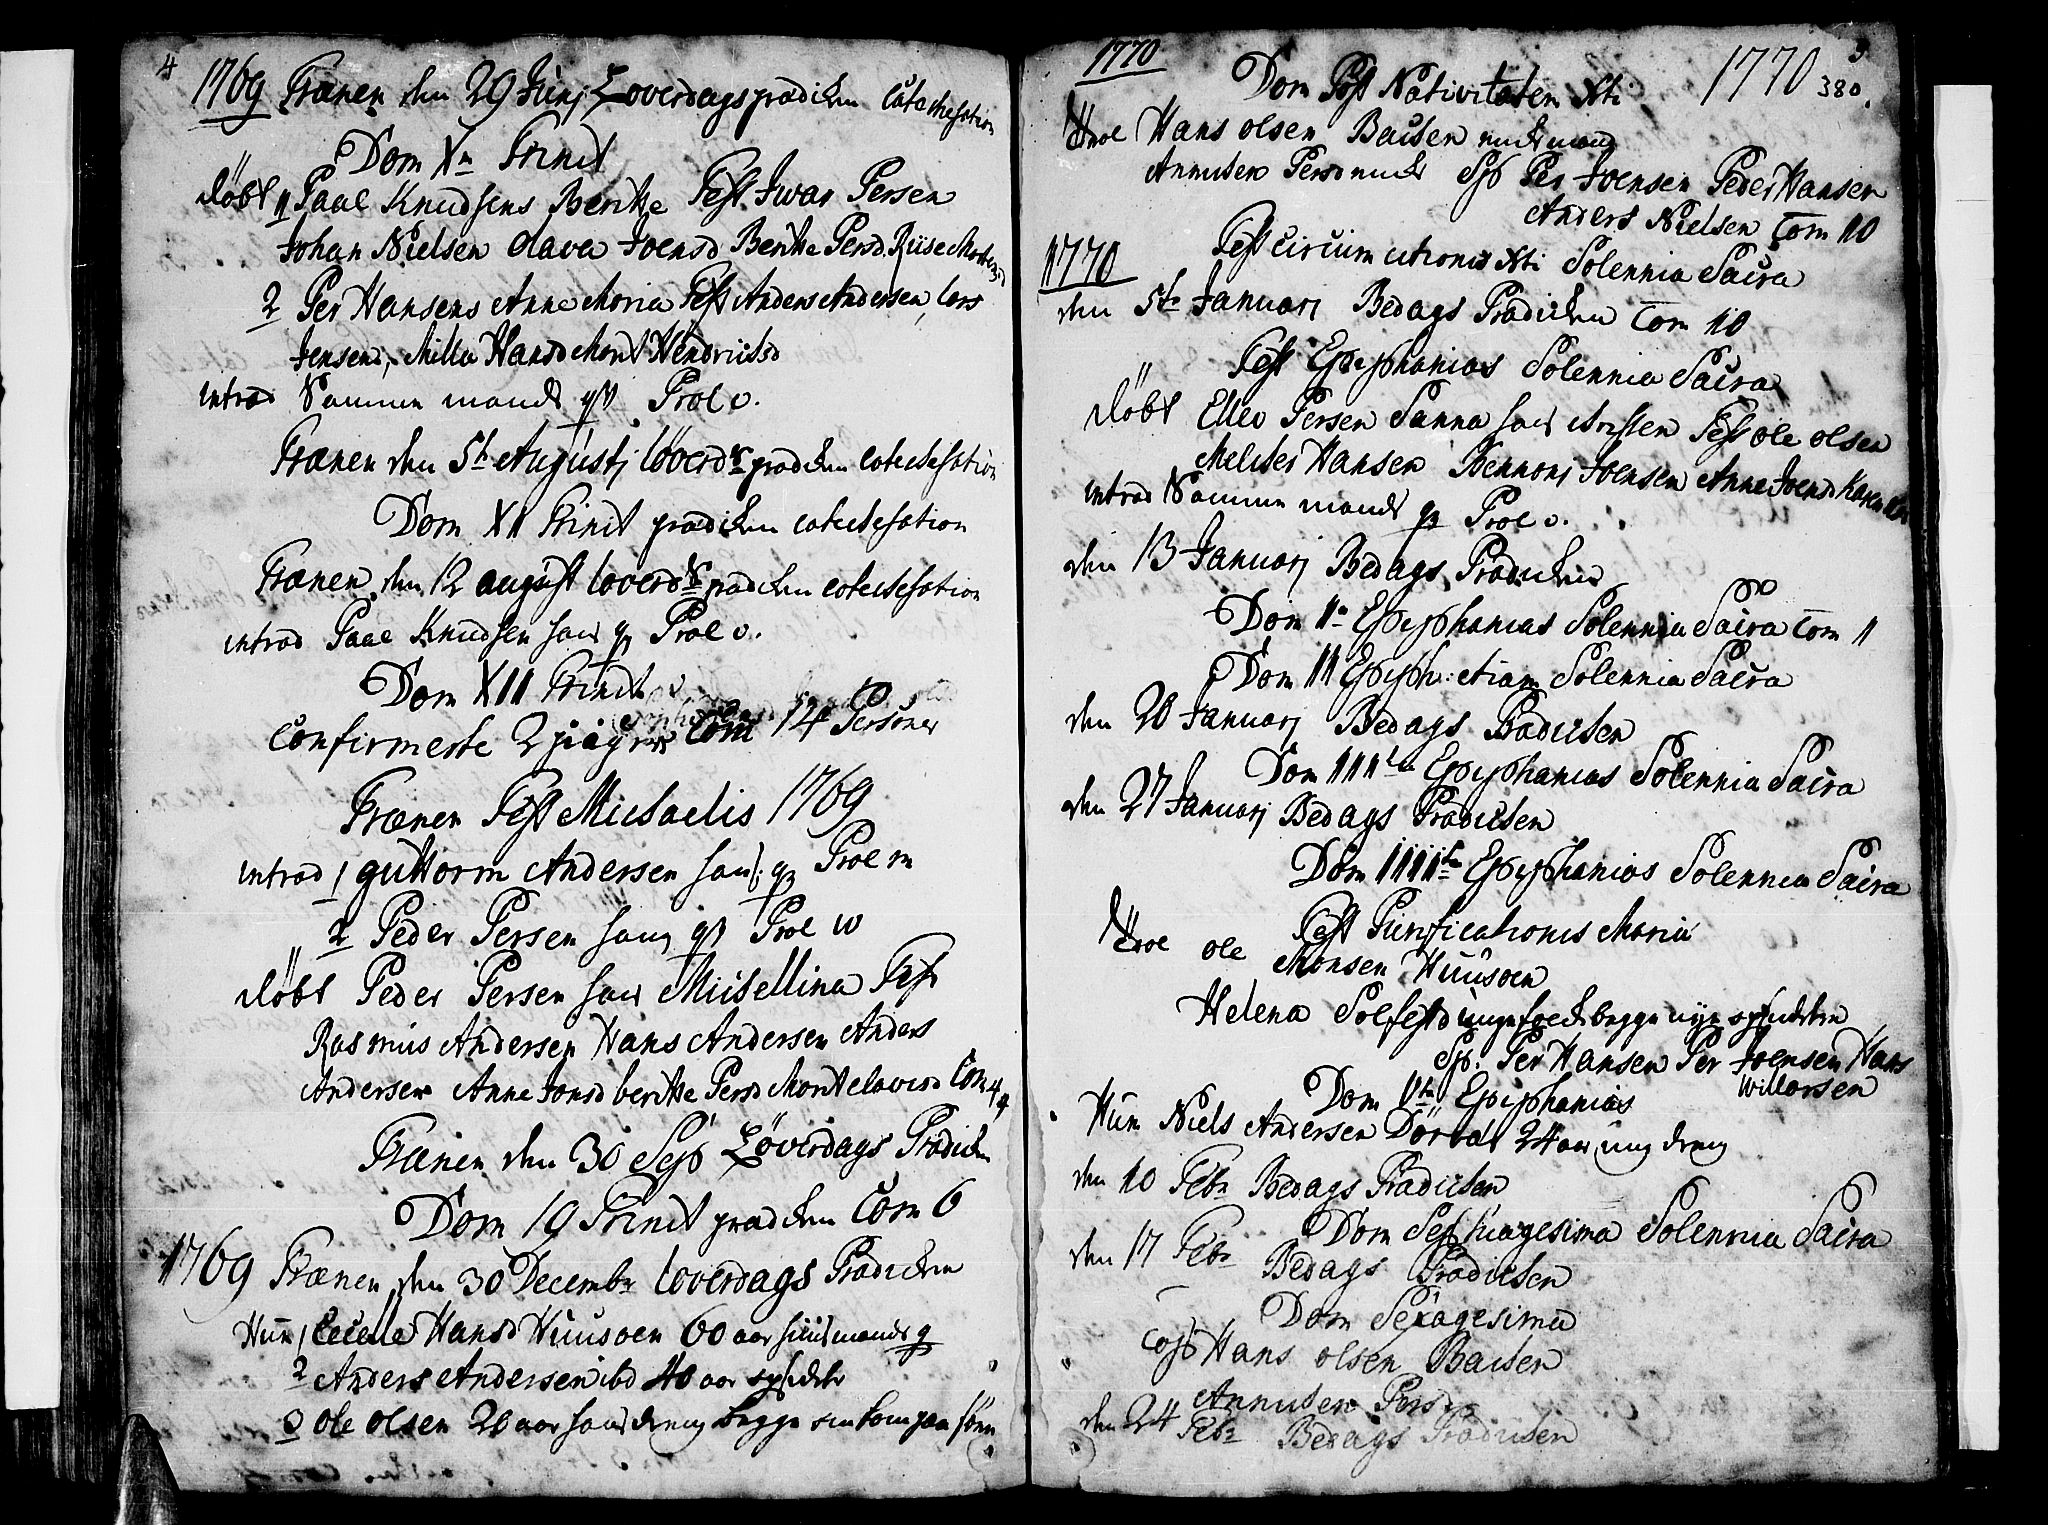 4
1769 Trænen den 29 Junj Løverdags prædiken Catechesation
Dom X Trinit
døbt 1 Paal Knudsens Berithe Test Iwar Persen
Johan Nielsen Olava Joensd Berithe Persd
2 Per Hansens Anne Maria Test Anders Andersen, Lars
Jensens, Milla Hansd Marit Hendrichsd
introd Samme mands q Prol v.
Trænen den 5te Augustj løverds prædiken catechesation
Dom XI Trinit prædiken catechesation
Trænen den 12 august løverds prædiken catechesation
introd Paal Knudsen hans q Prol v.
Dom XII Trinit
Confirmerte 2 piger Com 14 Personer
Trænen Fest Michaelis 1769
introd 1 Guttorm Andersen hans q Prol m
2 Peder Persen hans q Prol w
døbt Peder Persen hans Michellina Test
Rasmus Andersen Hans Andersen Anders
Andersen Anne Jonsd berithe Persd Marit Com 44
Trænen den 30 Sep Løverdags Prædiken
Dom 19 Trinit prædiken Com 6
1769 Trænen den 30 Decembr løverdags Prædiken
Hum 1 Cecelle Hansd Huusøen 60 aar mands q
2 Anders Andersen ibd 40 aar
3 Ole olsen 20 aar dreng begge omkom paa søen
1770
1770 5
380.
Dom Post Nativitatem Xti
Trol Hans olsen Backen
Annichen Persd Sp Per Joensen Peder Hansen
Anders Nielsen Com 10
Fest Circumcitionis Xti Solennia Sacra
1770
den 5te Januarj Bedags Prædiken Com 10
Fest Epiphanias Solennia Sacra
døbt Ellev Persen Sanna hans Test ole olsen
Melcher Hansen Bennonj Joensen Anne Joensd Karen
introd Samme mands q Prol v.
den 13 Januarj Bedags Prædiken
Dom 1 Epiphanias Solennia Sacra Com 11
Dom 11 Epiph: etiam Solennia Sacra
den 20 Januarj Bedags Prædicken
Dom 111tia Epiphanias Solennia Sacra
den 27 Januarj Bedags Prædicken
Dom 1111ta Epiphanias Solennia Sacra
Fest Purificationis Maria
Trol ole Monsen Huusøen
Helena begge
Sp. Per Hansen Per Joensen Hans
Willarsen
Dom Vta Epiphanias
Hum Niels Andersen 24 aar ung dreng
den 10 Febr Bedags Prædicken
Dom Septuagesima Solennia Sacra
den 17 Febr Bedags Prædicken
Dom Sexagesima
Cop Hans olsen Backen
Annichen Persd
den 24 Febr Bedags Prædicken